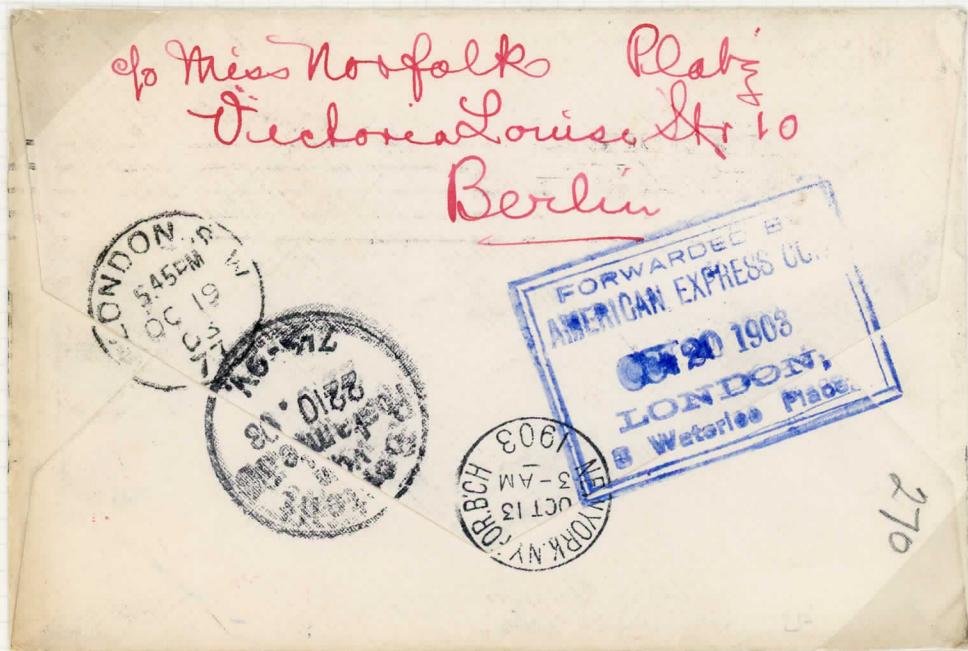 c/o Miss Norfolk Platz
Victoria Louise Str 10
Berlin
LONDON. S W
5.45PM
OC 19
03
77
FORWARDED B
AMERICAN EXPRESS CO.
OCT 20 1903
LONDON,
3 Waterloo Place.
22 10. 03
NEW YORK, N.Y. FOR. B'CH
OCT 13
3-AM
1903
270